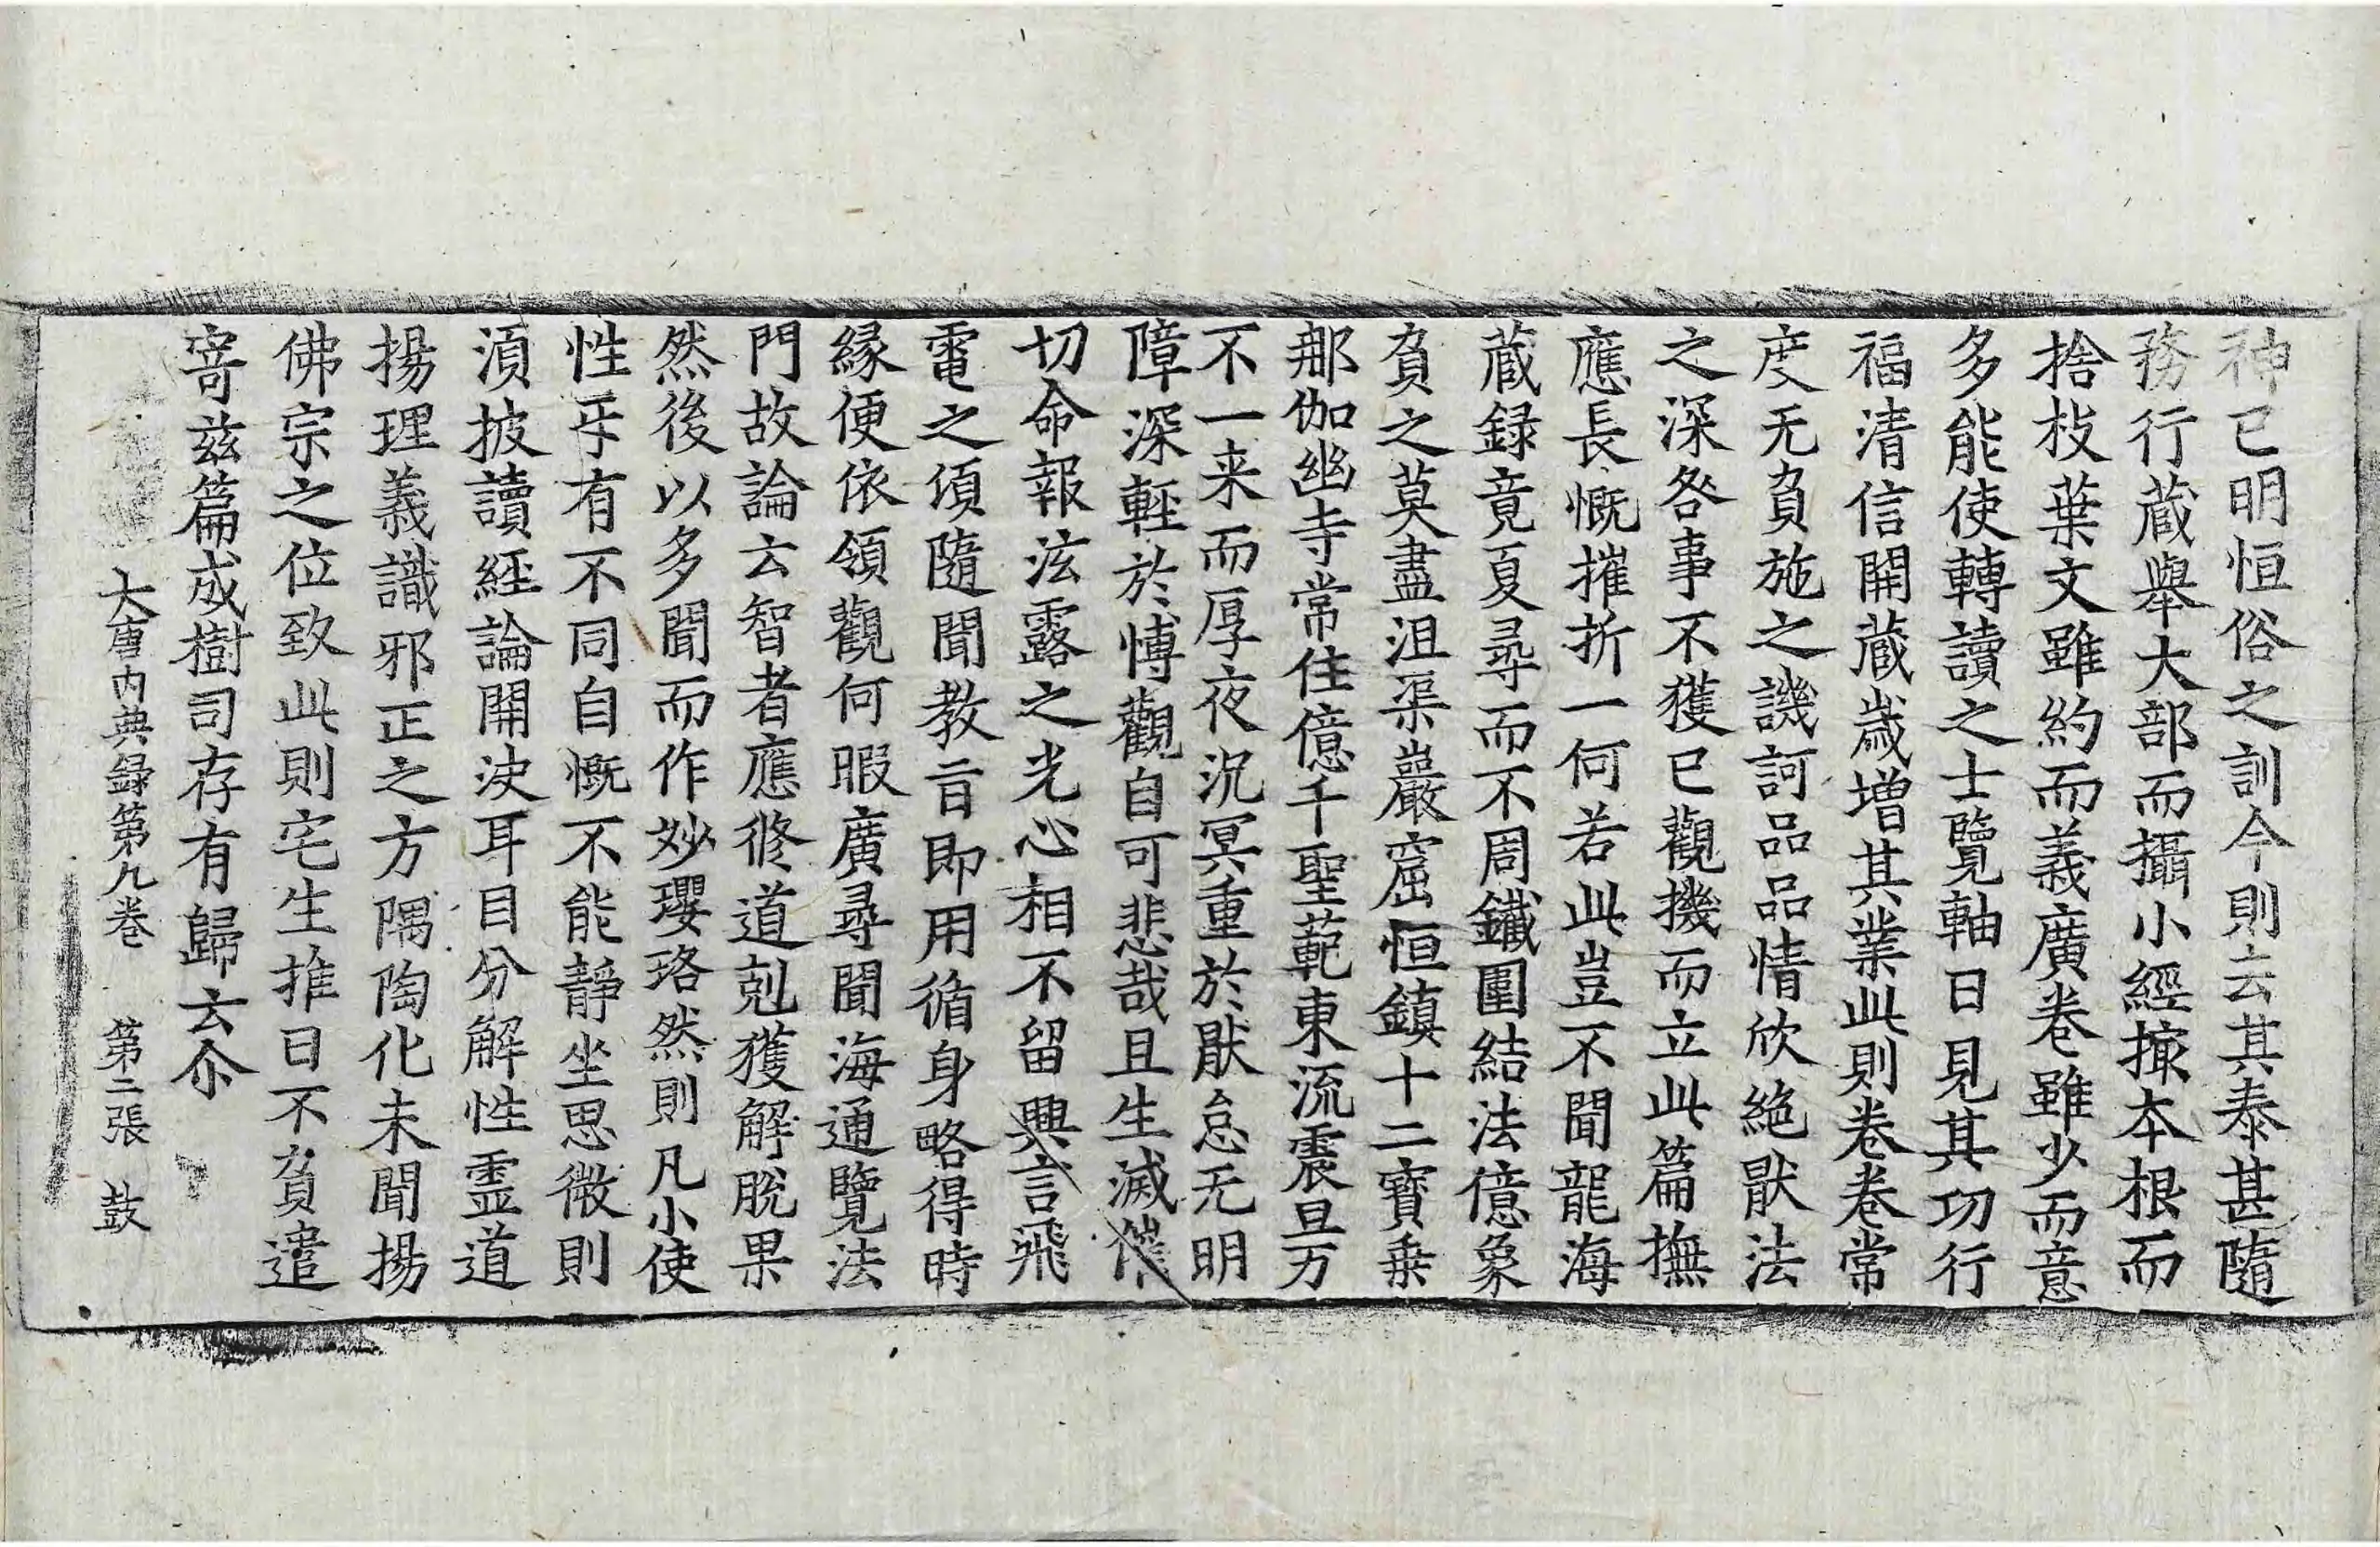 神已明恒俗之訓今則云其泰甚隨
務行蔵舉大部而攝小經撮本根而
捨枝葉文雖約而義廣卷雖少而意
多能使轉讀之士覽軸日見其功行
福清信開蔵歳增其業此則卷卷常
度无負施之譏訶品品情欣絕猒法
之深咎事不獲已觀機而立此篇撫
應長慨摧折一何若此豈不聞龍海
蔵録竟夏尋而不周鐵圍結法億象
負之莫盡沮渠巖窟恒鎮十二寶乗
那伽幽寺常住億千聖範東流震旦万
不一来而厚夜沉冥重於猒怠无明
障深輕於慱觀自可悲哉且生滅催
切命報泫露之光心相不留興言飛
電之頃隨聞教旨即用循身略得時
緣便依領觀何暇廣尋聞海通覽法
門故論云智者應修道剋獲解脫果
然後以多聞而作妙瓔珞然則凡小使
性乎有不同自慨不能靜坐思微則
湏披讀經論開決耳目分解性靈道
揚理義識邪正之方隅陶化未聞揚
佛宗之位致此則宅生推日不負遣
寄兹篇成樹司存有歸云尒
大唐内典録第九卷　第二張　鼓